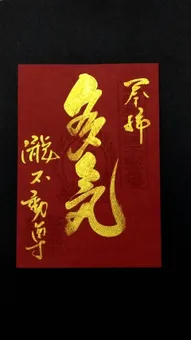 奉拝
多気
瀧不動尊